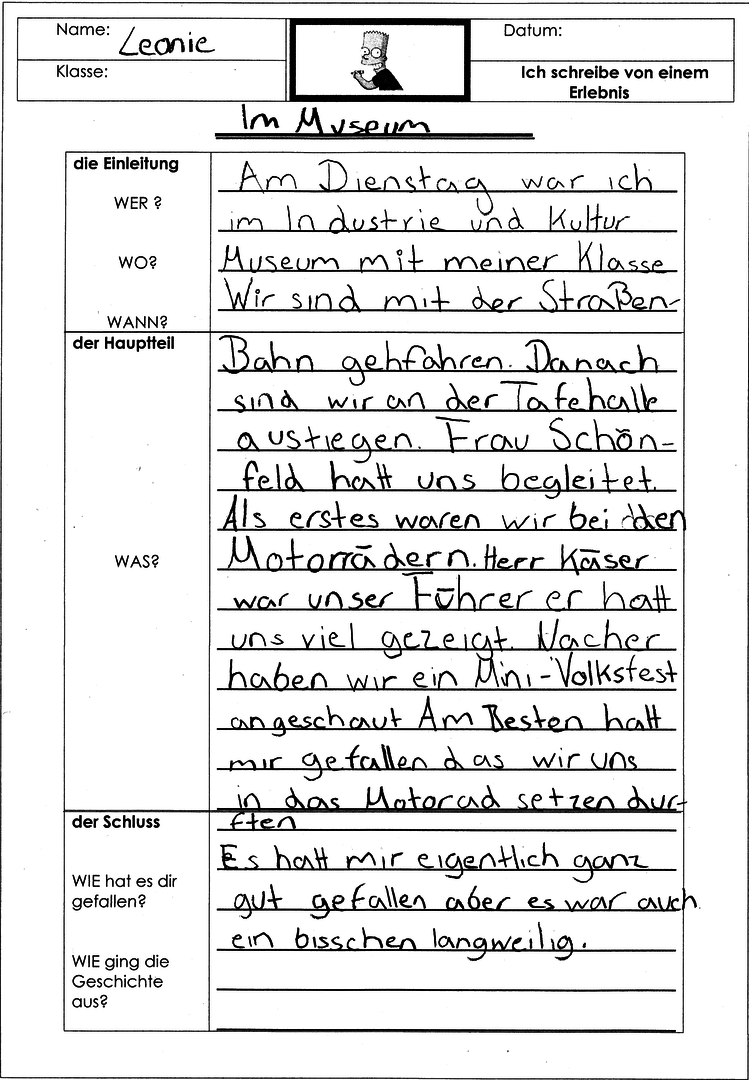 Name: Leonie
Datum:
Klasse:
Ich schreibe von einem
Erlebnis
Im Museum
die Einleitung
WER ?
WO?
WANN?
Am Dienstag war ich
im Industrie und Kultur
Museum mit meiner Klasse
Wir sind mit der Straßen-
der Hauptteil
WAS?
Bahn gehfahren. Danach
sind wir an der Tafehalle
austiegen. Frau Schön-
feld hatt uns begleitet.
Als erstes waren wir bei den
Motorrädern. Herr Käser
war unser Führer er hatt
uns viel gezeigt. Nacher
haben wir ein Mini-Volksfest
angeschaut Am Besten hatt
mir gefallen das wir uns
in das Motorad setzen dur-
ften
der Schluss
WIE hat es dir
gefallen?
WIE ging die
Geschichte
aus?
Es hatt mir eigentlich ganz
gut gefallen aber es war auch
ein bisschen langweilig.